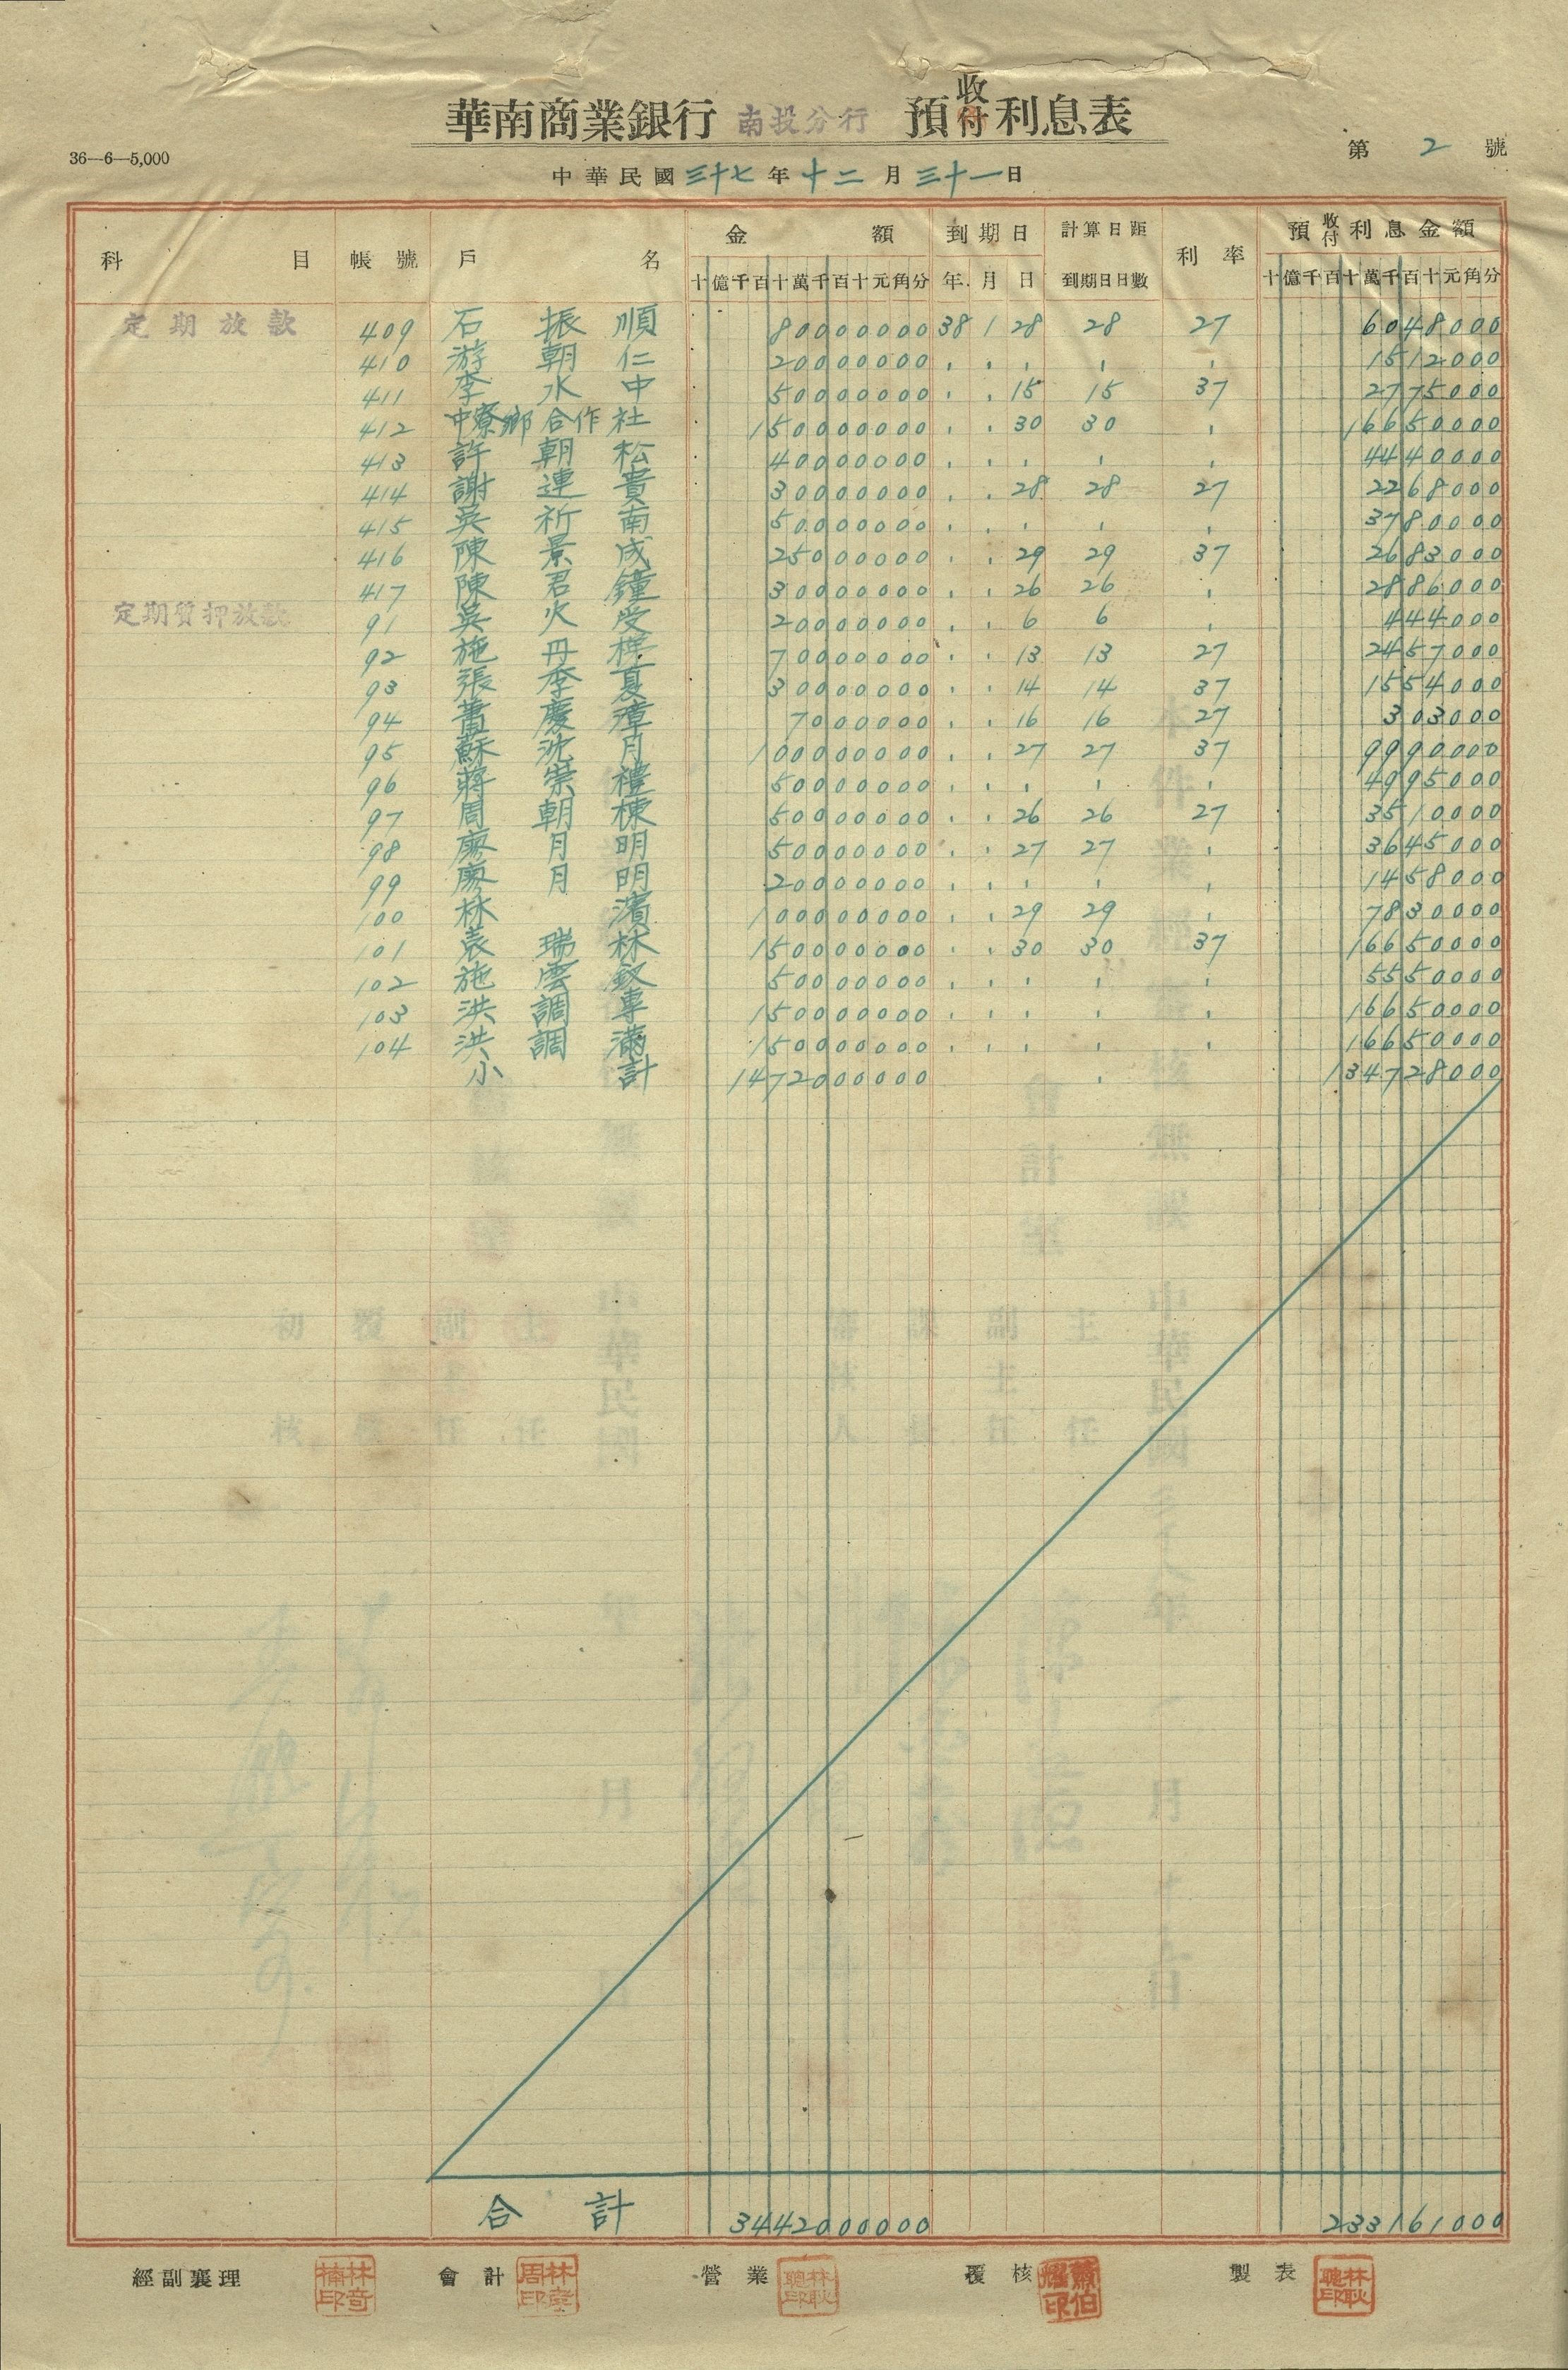 華南商業銀行 南投分行 預收付利息表
36—6—5,000
第 2 號
中華民國三十七年十二月三十一日
科目 帳號 戶名 金額 到期日 計算日距到期日日數 利率 預收付利息金額
十億千百十萬千百十元角分 年 月 日 十億千百十萬千百十元角分
定期放款 409 石振順 80000000 38 1 28 28 27 6048000
410 游朝仁 20000000 〃 〃 〃 〃 〃 1512000
411 李水中 50000000 〃 〃 15 15 37 2775000
412 中寮鄉合作社 150000000 〃 〃 30 30 〃 16650000
413 許朝松 40000000 〃 〃 〃 〃 〃 4440000
414 謝連貴 30000000 〃 〃 28 28 27 2268000
415 吳祈南 50000000 〃 〃 〃 〃 〃 3780000
416 陳景成 25000000 〃 〃 29 29 37 2683000
417 陳君鐘 30000000 〃 〃 26 26 〃 2886000
定期質押放款 91 吳火受 20000000 〃 〃 6 6 〃 444000
92 施丹 70000000 〃 〃 13 13 27 2457000
93 張李夏 30000000 〃 〃 14 14 37 1554000
94 蕭慶璋 7000000 〃 〃 16 16 27 303000
95 蘇沈月 100000000 〃 〃 27 27 37 9990000
96 蔣崇禮 50000000 〃 〃 〃 〃 〃 4995000
97 周朝棟 50000000 〃 〃 26 26 27 3510000
98 廖月明 50000000 〃 〃 27 27 〃 3645000
99 廖月明 20000000 〃 〃 〃 〃 〃 1458000
100 林濱 100000000 〃 〃 29 29 〃 7830000
101 袁瑞林 150000000 〃 〃 30 30 37 16650000
102 施雲釵 50000000 〃 〃 〃 〃 〃 5550000
103 洪調專 150000000 〃 〃 〃 〃 〃 16650000
104 洪調滿 150000000 〃 〃 〃 〃 〃 16650000
小計 1472000000 134728000
合計 3442000000 233161000
經副襄理 會計 營業 覆核 製表